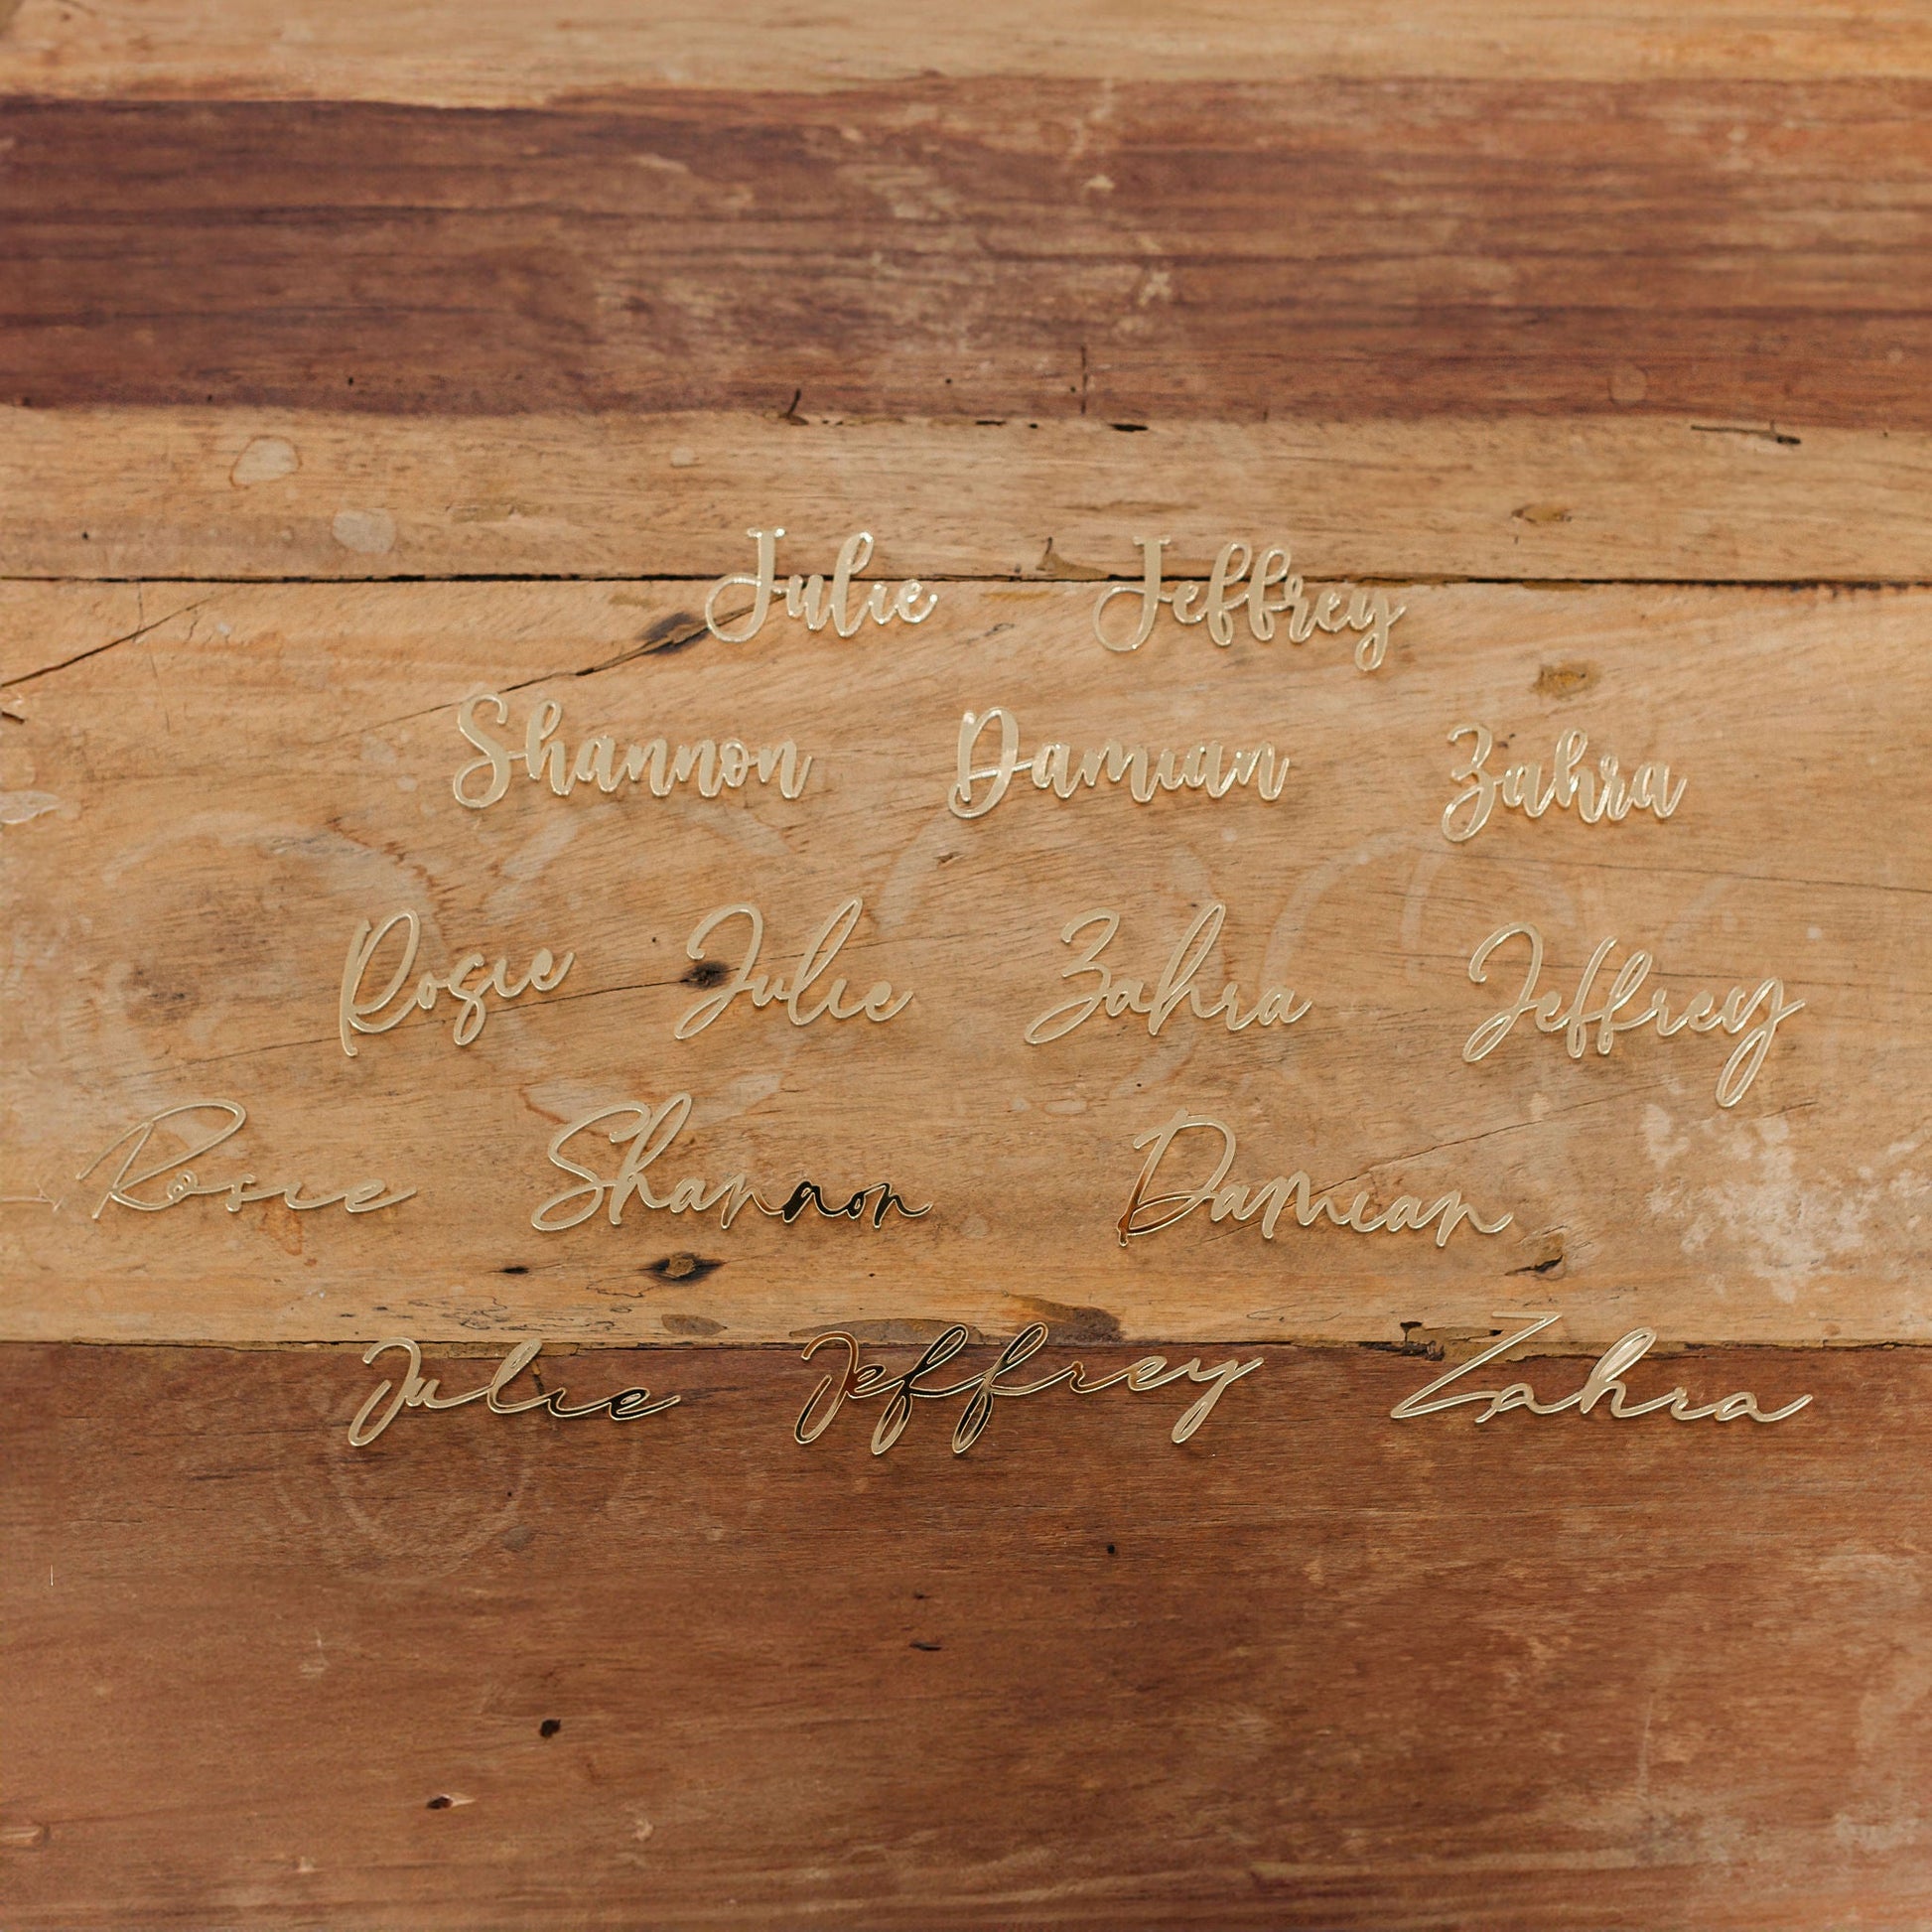 Julie Jeffrey
Shannon Damian Zahra
Rosie Julie Zahra Jeffrey
Rosie Shannon Damian
Julie Jeffrey Zahra